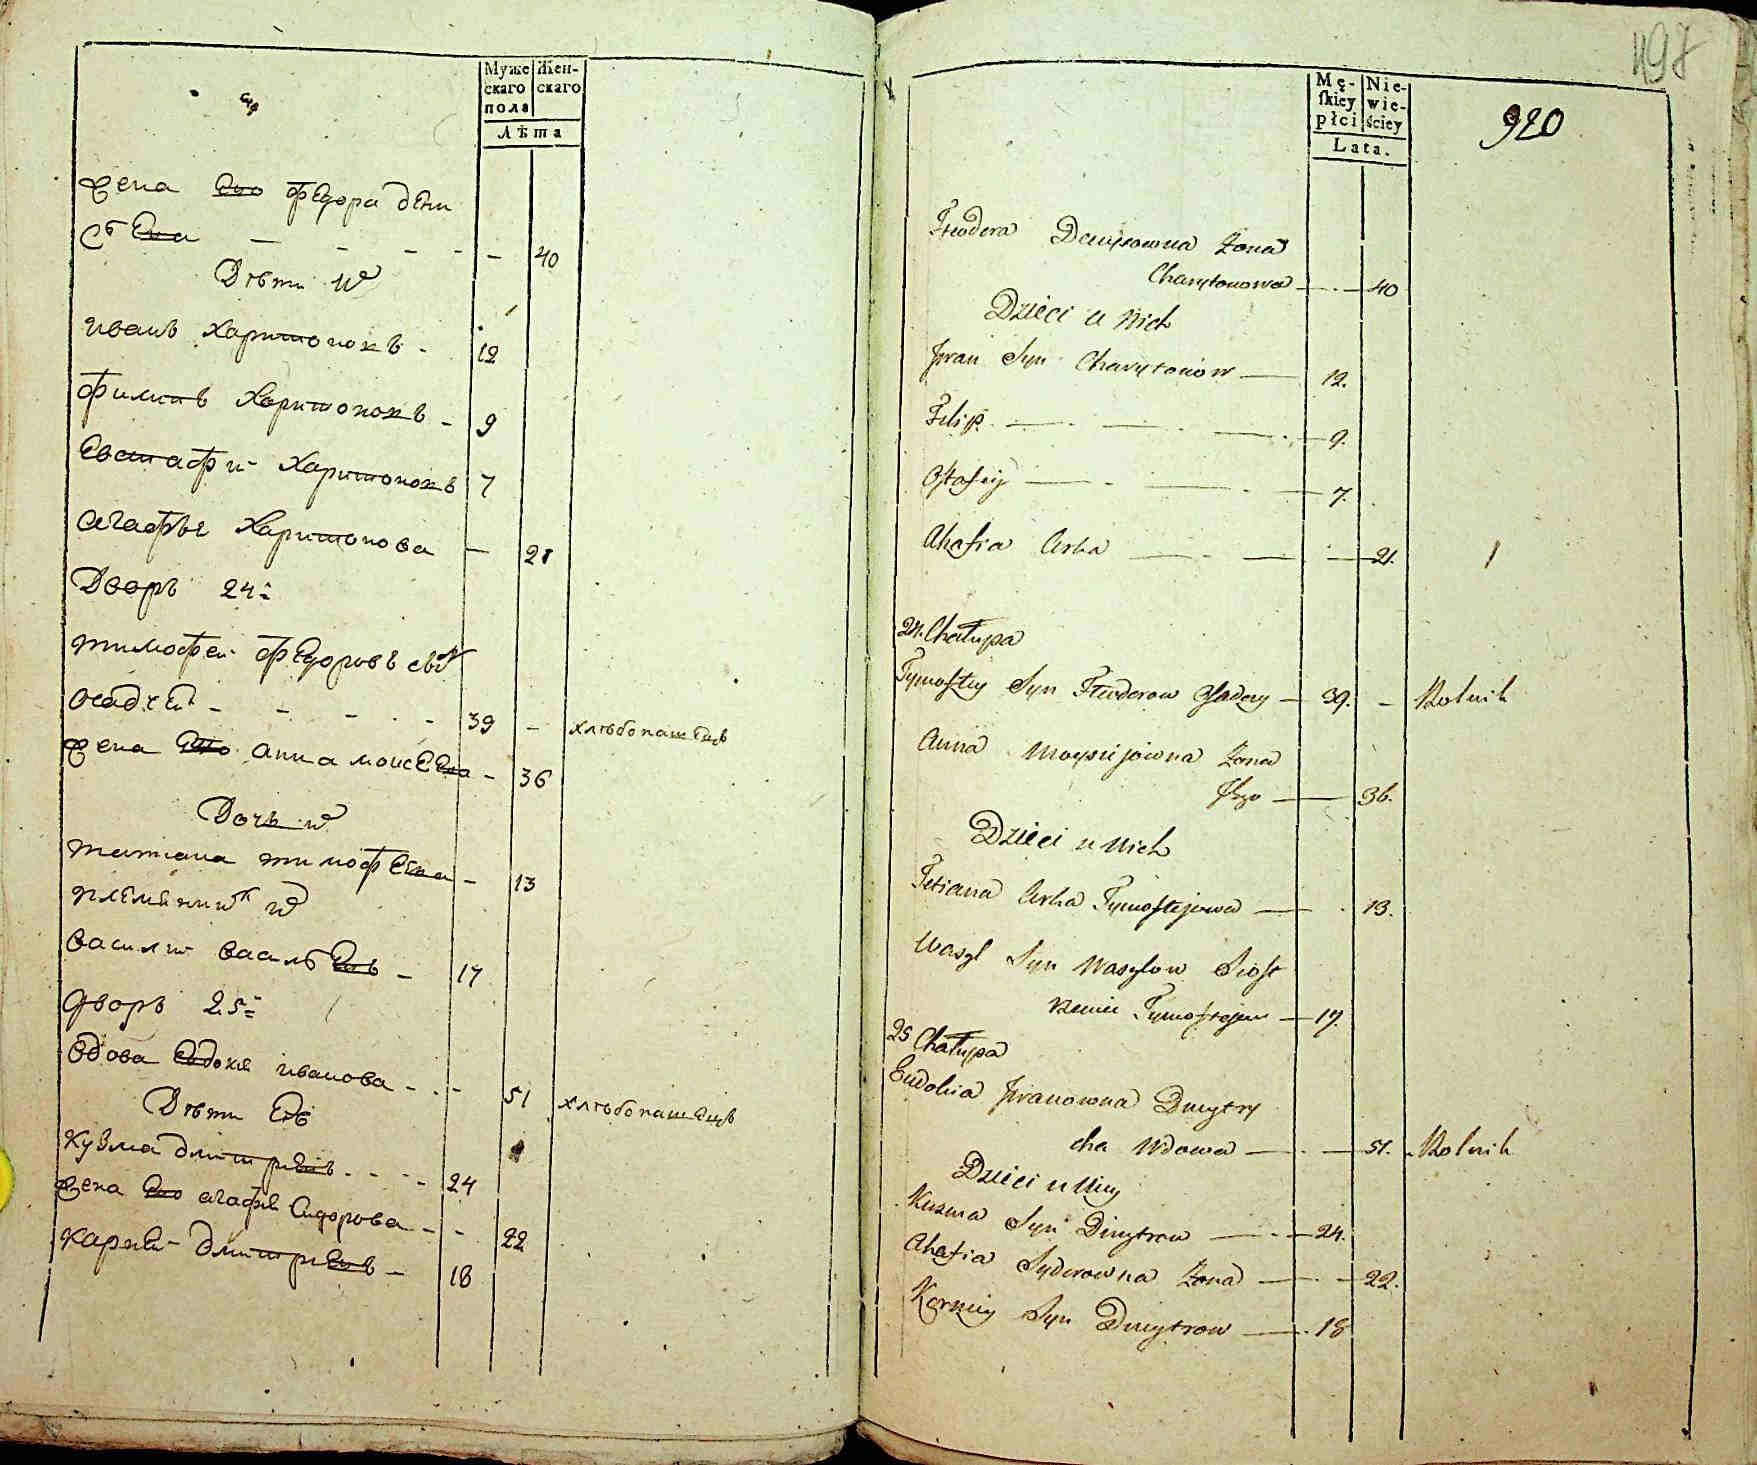 Муже Жен-
скаго скаго
пола
Лѣта
Жена Его Федора Дени
сѣева - - - - - 40
Дѣти их
Иванъ Харитоновъ - 12
Филипъ Харитоновъ - 9
Евстафи Харитоновъ 7
Агафья Харитонова - 21
Дворъ 24:
Тимофеи Федоровъ сынъ
Осадчей - - - - - 39 - хлѣбопашецъ
Жена Его Анна Моисеева - 36
Дочь их
Татиана Тимофеева - 13
племянникъ их
Василии Васильевъ - 17
Дворъ 25:
Вдова Евдокия Иванова - - - 51 хлѣбопашецъ
Дѣти Еѣ
Кузма Дмитриевъ - - - - 24
Жена Его Агафия Сидорова - - 22
Карпей Дмитриевъ - 18
498
920
Mę- Nie-
skiey wie-
płci ściey
Lata.
Fteodora Denysowna Zona
Charytonowa — 40
Dzieci u Nich
Jwan Syn Charytonow — 12.
Filip — 9.
Ostafiy — 7.
Ahafia Curka — 21.
24. Chałupa
Tymoftey Syn Fteodorow Osadczy — 39. - Rolnik
Anna Moysiijowna Zona
Jego — 36.
Dzieci u Nich
Tetiana Curka Tymoftejowa — 13.
Wasyl Syn Wasylow Siost
rzeniec Tymofteja — 17.
25 Chałupa
Eudokia Jwanowna Dmytry
cha Wdowa — 51. - Rolnik
Dzieci u Niey
Kuzma Syn Dmytrow — 24.
Ahafia Syderowna Zona — 22.
Karniey Syn Dmytrow — 18